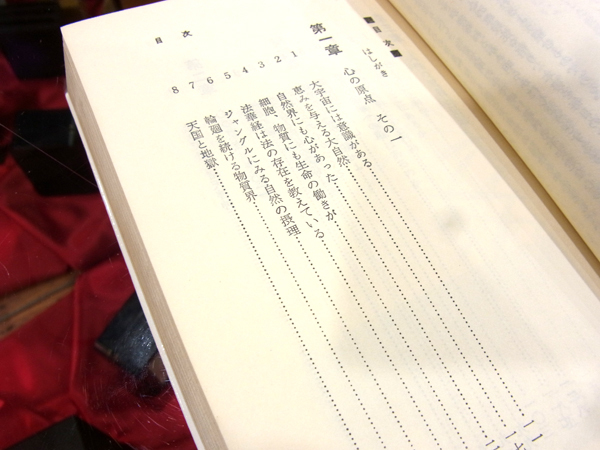 ■目次■
はしがき
第一章 心の原点 その一
1 大宇宙には意識がある
2 恵みを与える大自然
3 自然界にも心があった
4 細胞、物質にも生命の働きが
5 法華経は法の存在を教えている
6 ジャングルにみる自然の摂理
7 輪廻を続ける物質界
8 天国と地獄
目次